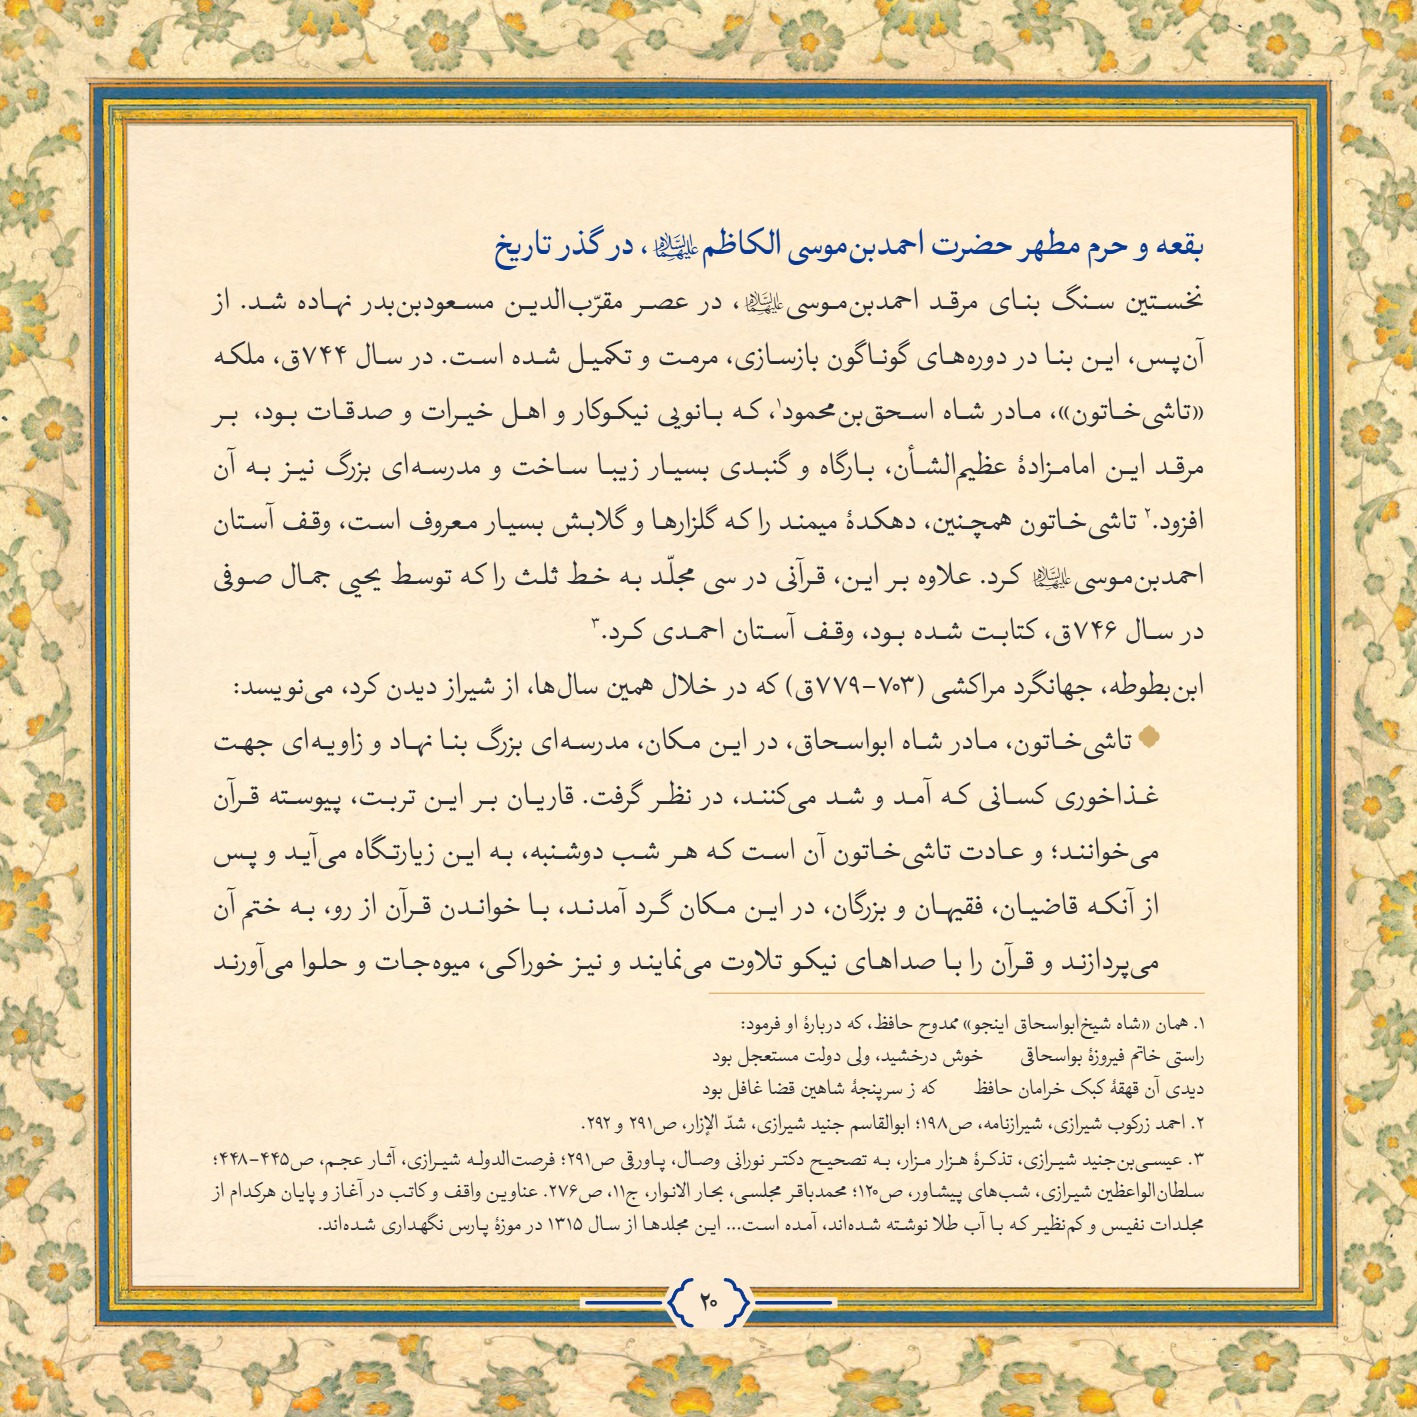 بقعه و حرم مطهر حضرت احمدبن‌موسی الکاظم علیهماالسلام، در گذر تاریخ
نخستین سنگ بنای مرقد احمدبن‌موسی علیهماالسلام، در عصر مقرّب‌الدین مسعودبن‌بدر نهاده شد. از
آن‌پس، این بنا در دوره‌های گوناگون بازسازی، مرمت و تکمیل شده است. در سال ۷۴۴ق، ملکه
«تاشی‌خاتون»، مادر شاه اسحق‌بن‌محمود۱، که بانویی نیکوکار و اهل خیرات و صدقات بود، بر
مرقد این امامزادهٔ عظیم‌الشأن، بارگاه و گنبدی بسیار زیبا ساخت و مدرسه‌ای بزرگ نیز به آن
افزود.۲ تاشی‌خاتون همچنین، دهکدهٔ میمند را که گلزارها و گلابش بسیار معروف است، وقف آستان
احمدبن‌موسی علیهماالسلام کرد. علاوه بر این، قرآنی در سی مجلّد به خط ثلث را که توسط یحیی جمال صوفی
در سال ۷۴۶ق، کتابت شده بود، وقف آستان احمدی کرد.۳
ابن‌بطوطه، جهانگرد مراکشی (۷۰۳-۷۷۹ق) که در خلال همین سال‌ها، از شیراز دیدن کرد، می‌نویسد:
تاشی‌خاتون، مادر شاه ابواسحاق، در این مکان، مدرسه‌ای بزرگ بنا نهاد و زاویه‌ای جهت
غذاخوری کسانی که آمد و شد می‌کنند، در نظر گرفت. قاریان بر این تربت، پیوسته قرآن
می‌خوانند؛ و عادت تاشی‌خاتون آن است که هر شب دوشنبه، به این زیارتگاه می‌آید و پس
از آنکه قاضیان، فقیهان و بزرگان، در این مکان گرد آمدند، با خواندن قرآن از رو، به ختم آن
می‌پردازند و قرآن را با صداهای نیکو تلاوت می‌نمایند و نیز خوراکی، میوه‌جات و حلوا می‌آورند
۱. همان «شاه شیخ‌ابواسحاق اینجو» ممدوح حافظ، که دربارهٔ او فرمود:
راستی خاتم فیروزهٔ بواسحاقی خوش درخشید، ولی دولت مستعجل بود
دیدی آن قهقهٔ کبک خرامان حافظ که ز سرپنجهٔ شاهین قضا غافل بود
۲. احمد زرکوب شیرازی، شیرازنامه، ص۱۹۸؛ ابوالقاسم جنید شیرازی، شدّ الإزار، ص۲۹۱ و ۲۹۲.
۳. عیسی‌بن‌جنید شیرازی، تذکرهٔ هزار مزار، به تصحیح دکتر نورانی وصال، پاورقی ص۲۹۱؛ فرصت‌الدوله شیرازی، آثار عجم، ص۴۴۵-۴۴۸؛
سلطان‌الواعظین شیرازی، شب‌های پیشاور، ص۱۲۰؛ محمدباقر مجلسی، بحار الانوار، ج۱۱، ص۲۷۶. عناوین واقف و کاتب در آغاز و پایان هرکدام از
مجلدات نفیس و کم‌نظیر که با آب طلا نوشته شده‌اند، آمده است... این مجلدها از سال ۱۳۱۵ در موزهٔ پارس نگهداری شده‌اند.
۲۰